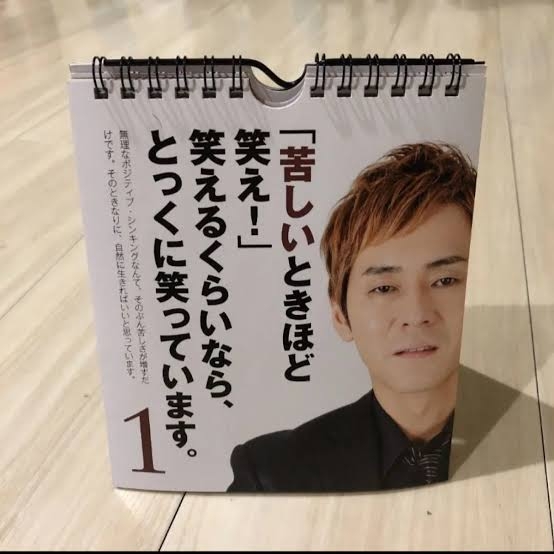 「苦しいときほど
笑え！」
笑えるくらいなら、
とっくに笑っています。
無理なポジティブ・シンキングなんて、そのぶん苦しさが増すだ
けです。そのときなりに、自然に生きればいいと思っています。
1